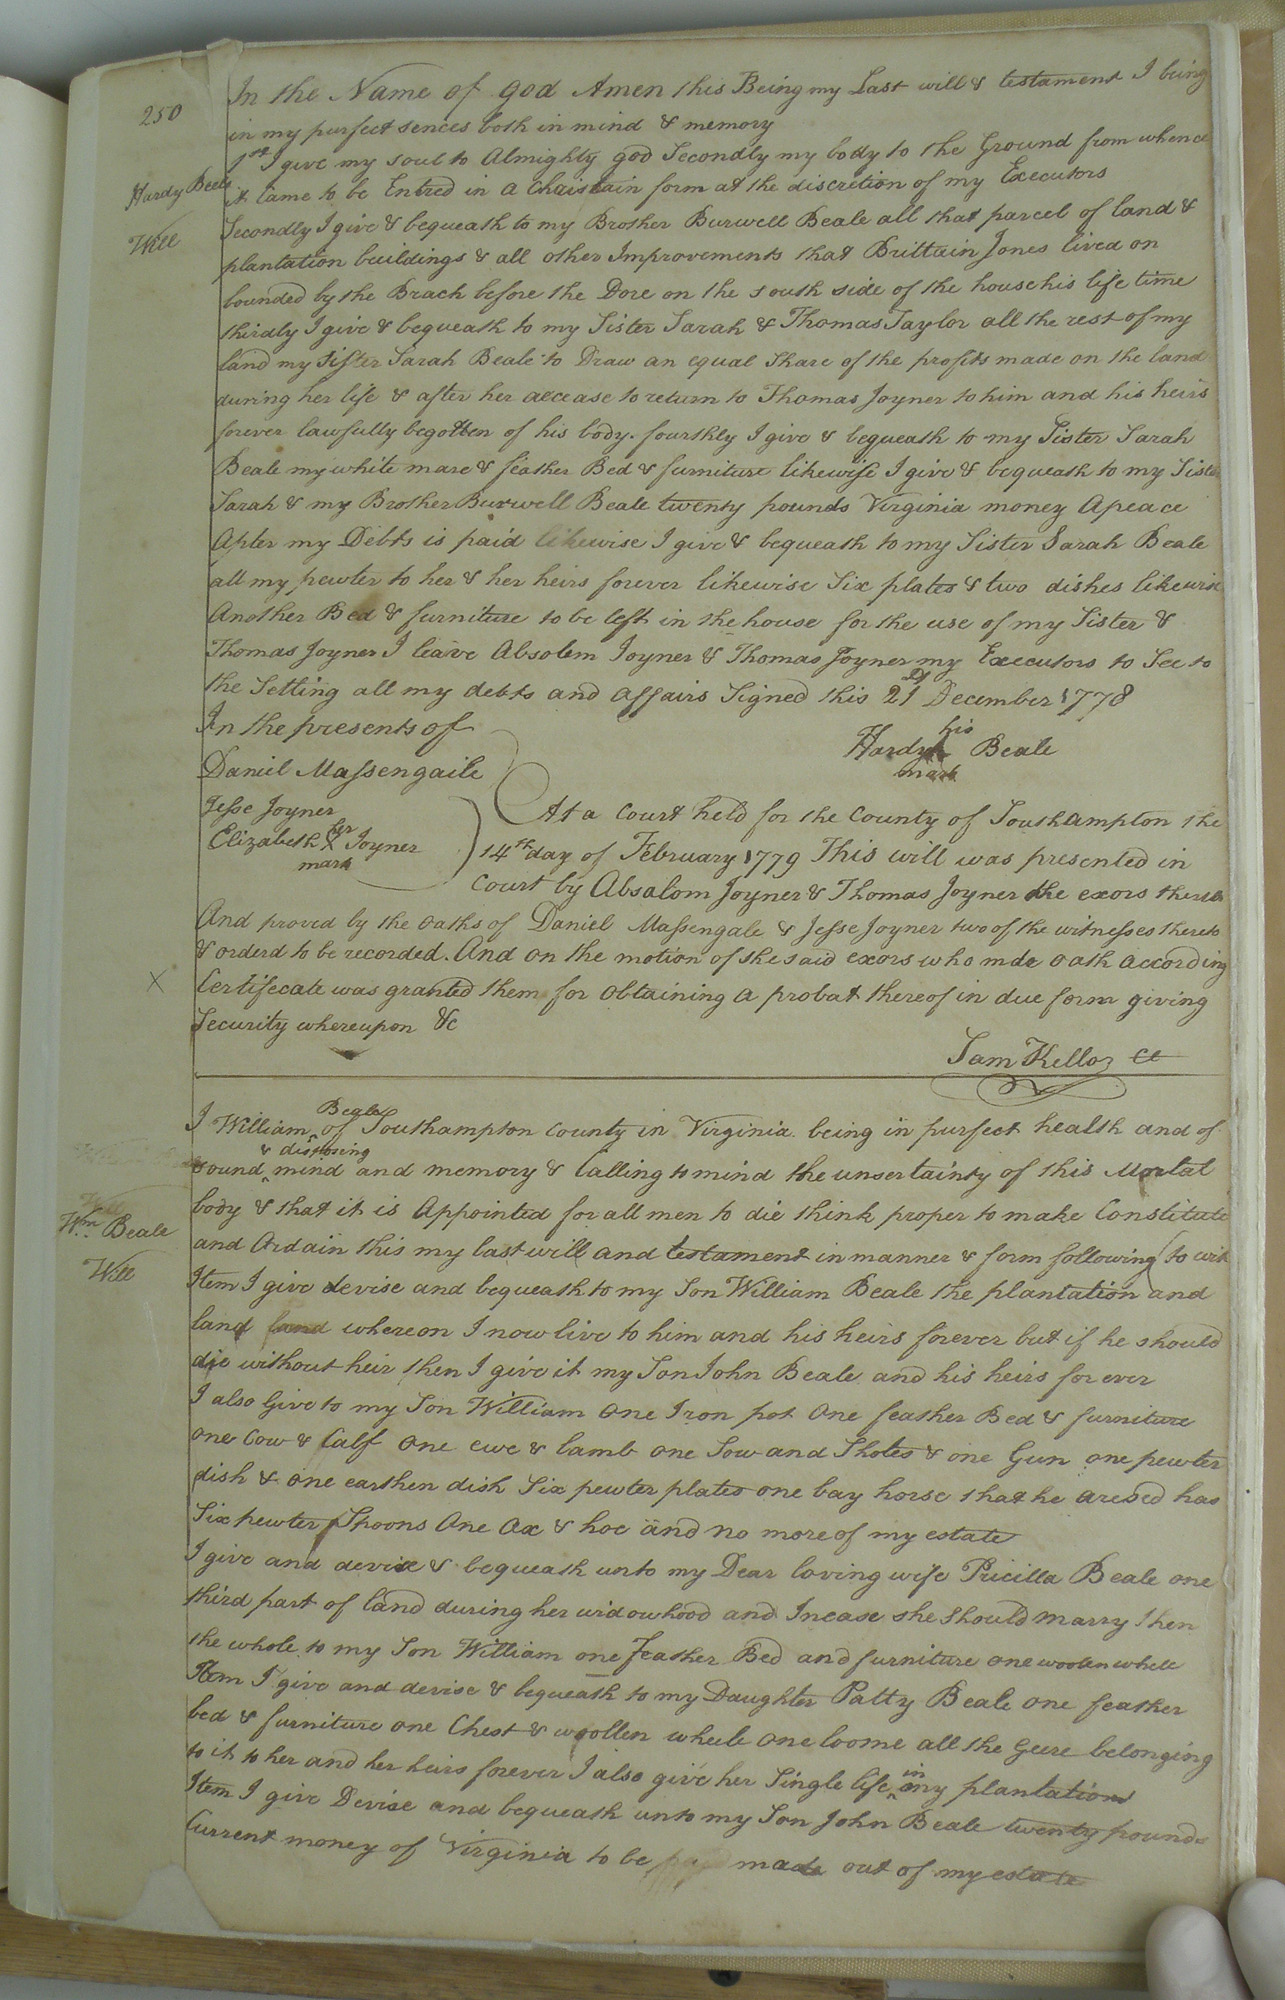 250
Hardy Beels
Will
In the Name of god Amen this Being my Last will & testament I being
in my purfect sences both in mind & memory
1st I give my soul to Almighty god Secondly my body to the Ground from whence
it came to be Entred in a Christain form at the discretion of my Executors
Secondly I give & bequeath to my Brother Burwell Beale all that parcel of land &
plantation buildings & all other Improvements that Brittain Jones lived on
bounded by the Brach before the Dore on the south side of the house his life time
thirdly I give & bequeath to my Sister Sarah & Thomas Taylor all the rest of my
land my Sister Sarah Beale to Draw an equal Share of the profits made on the land
during her life & after her decease to return to Thomas Joyner to him and his heirs
forever lawfully begotten of his body. fourthly I give & bequeath to my Sister Sarah
Beale my white mare & feather Bed & furniture likewise I give & bequeath to my Sister
Sarah & my Brother Burwell Beale twenty pounds Virginia money Apeace
After my Debts is paid likewise I give & bequeath to my Sister Sarah Beale
all my pewter to her & her heirs forever likewise Six plates & two dishes likewise
Another Bed & furniture to be left in the house for the use of my Sister &
Thomas Joyner I leave Absolem Joyner & Thomas Joyner my Executors to See to
the Setling all my debts and affairs Signed this 21st December 1778
In the presents of
his
Hardy Beale
mark
Daniel Massengaile
Jesse Joyner
Elizabeth her X Joyner
mark
At a Court held for the County of Southampton the
14th day of February 1779 This will was presented in
Court by Absalom Joyner & Thomas Joyner the exors thereof
And proved by the oaths of Daniel Massengale & Jesse Joyner two of the witnesses thereto
& orderd to be recorded. And on the motion of the said exors who made oath according
X
Certifecate was granted them for obtaining a probat thereof in due form giving
Security whereupon &c
Sam Kello Cl
Wm. Beale
Will
I William Beale of Southampton County in Virginia being in purfect health and of
sound & disposing mind and memory & Calling to mind the unsertainty of this Mortal
body & that it is Appointed for all men to die think proper to make Constitute
and Ordain this my last will and testament in manner & form following (to wit
Item I give devise and bequeath to my Son William Beale the plantation and
land land whereon I now live to him and his heirs forever but if he should
die without heir then I give it my Son John Beale and his heirs forever
I also Give to my Son William One Iron pot One feather Bed & furniture
one Cow & Calf One ewe & lamb one Sow and Shotes & one Gun one pewter
dish & one earthen dish Six pewter plates one bay horse that he
has
Six pewter Spoons One Ax & hoe and no more of my estate
I give and devise & bequeath unto my Dear loving wife Pricilla Beale one
third part of land during her widowhood and Incase she Should marry then
the whole to my Son William one Feather Bed and furniture one woolen whele
Item I give and devise & bequeath to my Daughter Patty Beale one feather
bed & furniture one Chest & woollen wheele one loome all the Geere belonging
to it to her and her heirs forever I also give her Single life in my plantation
Item I give Devise and bequeath unto my Son John Beale twenty pounds
Current money of Virginia to be made out of my estate